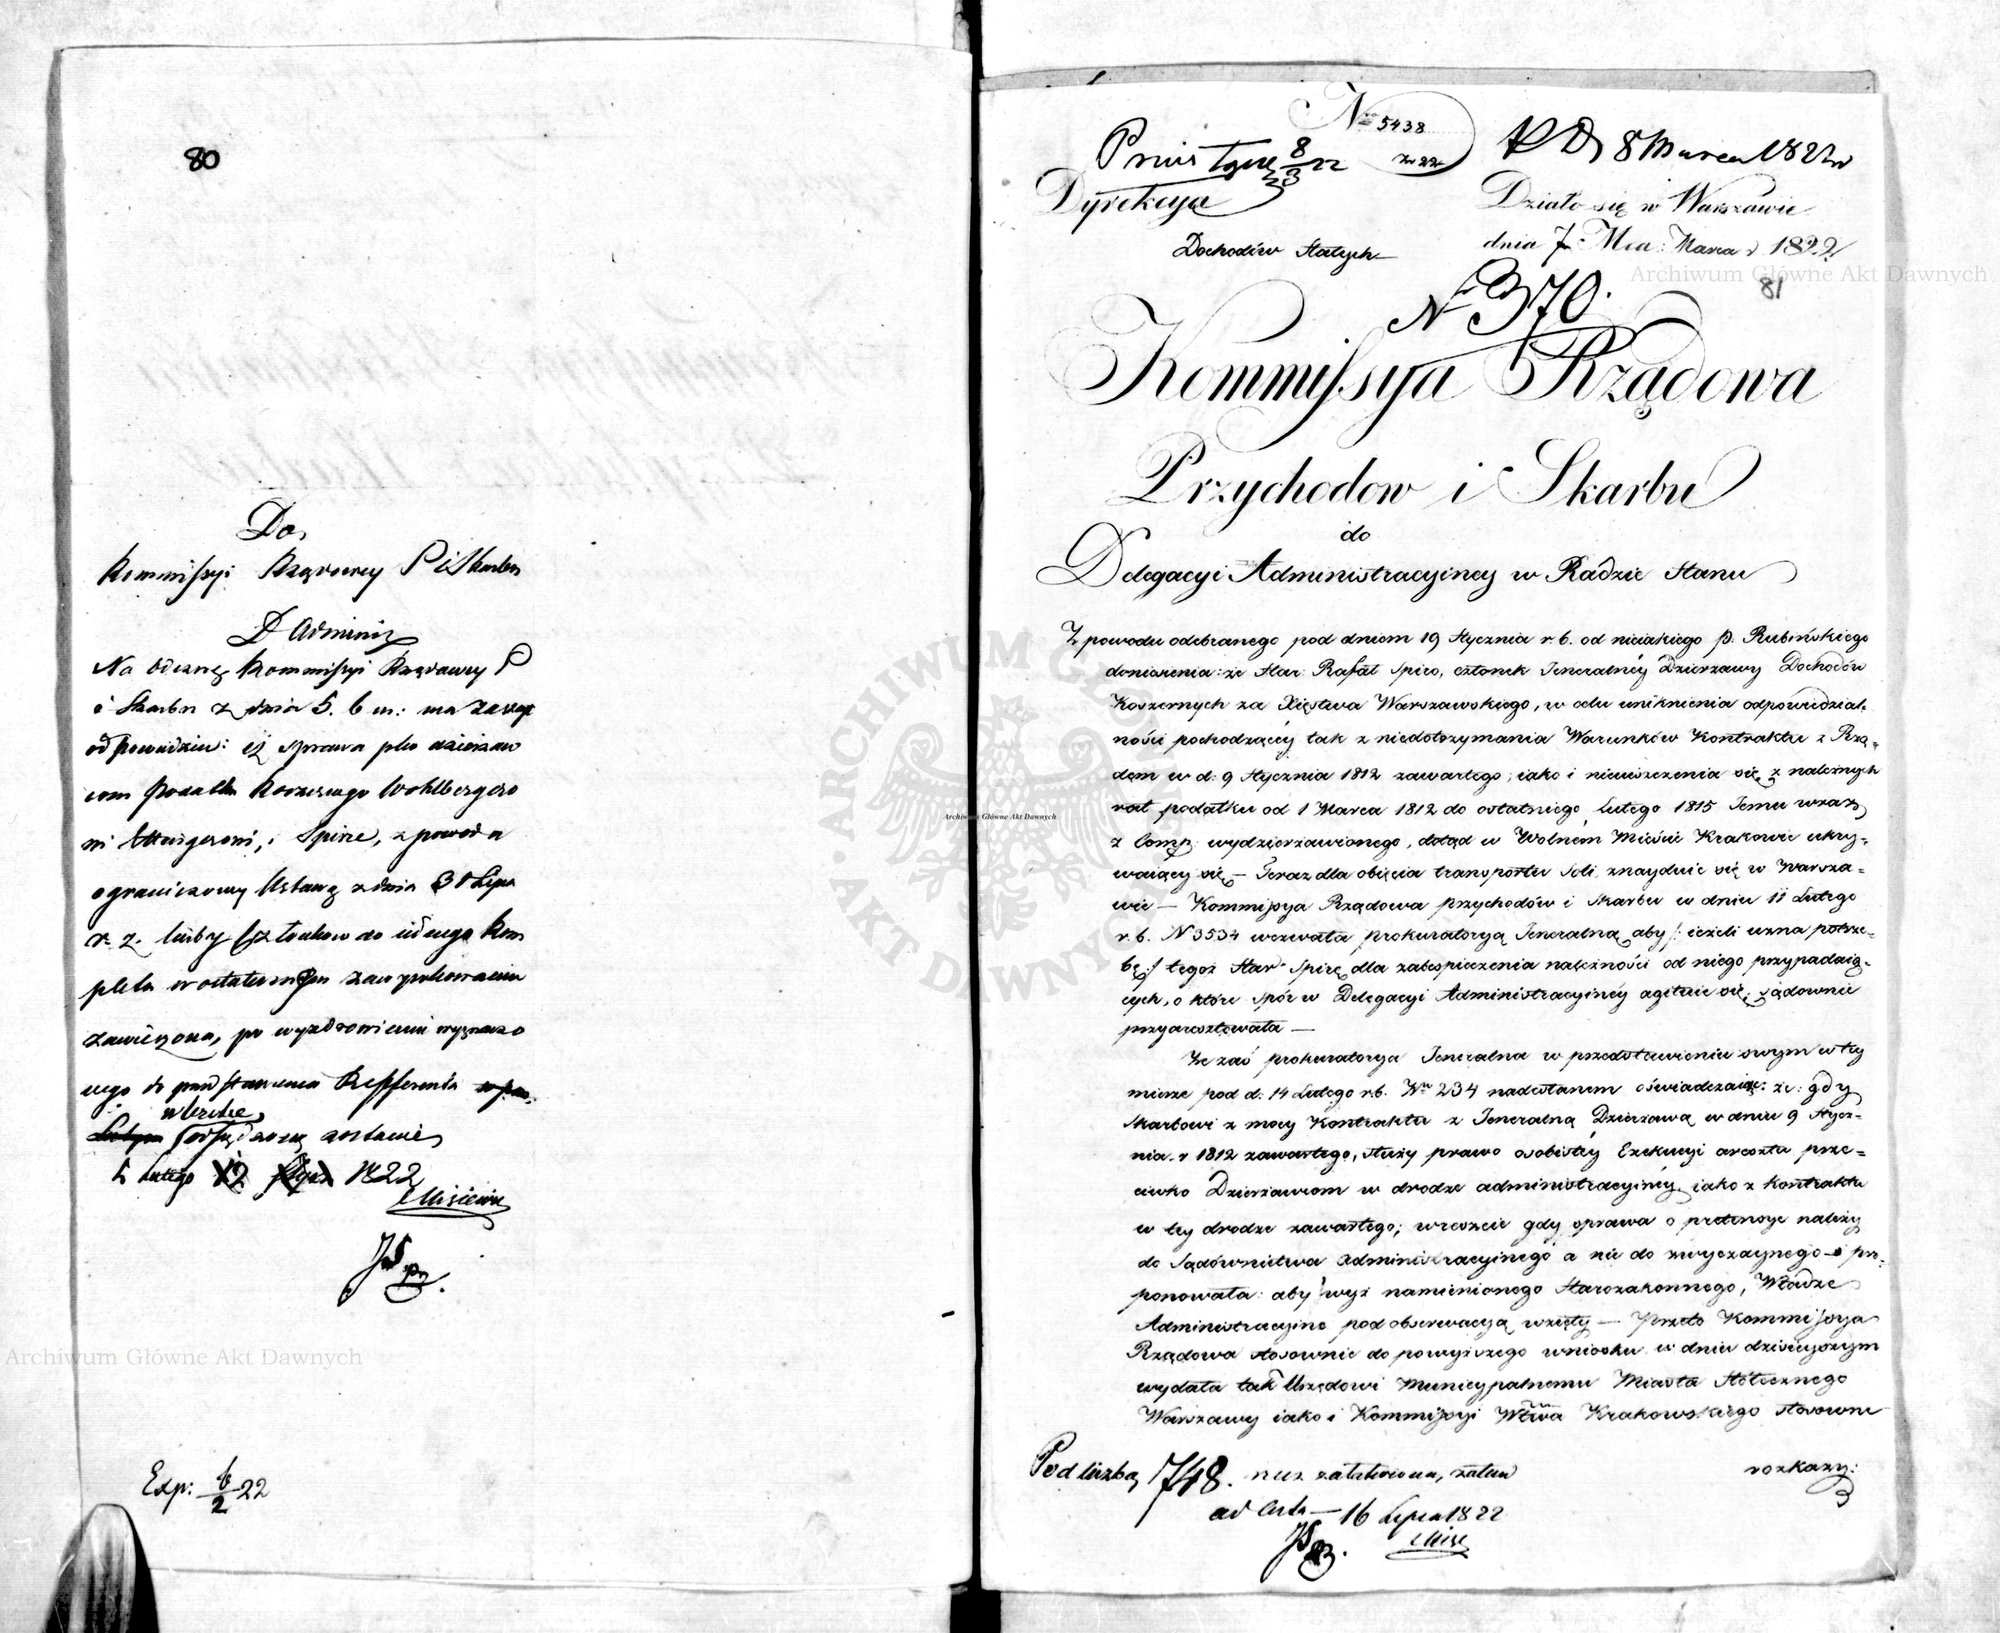 80
Do
Kommissyi Rządowey P i Skarbu
D Adminis
Na Odezwę Kommissyi Rządowey P
i Skarbu z dnia 5. b m: ma zaszcz
odpowiedzieć: iż sprawa płko dzierżaw
com Podatku Koszernego Wohlbergero
i Spirze, z powodu
ograniczoney Ustawą z dnia 31 Lipca
r. z. liczby Członkow do iednego Kom
pletu w ostatecznym zawyrokowaniu
zawieszona, po wyzdrowieniu wyznaczo
nego do przedstawienia Refferenta
wkrótce
osądzoną zostanie
5 Lutego 1822
Exp: 6/2 22
No 5438
w 22
Dyrekcya
Dochodów Stałych
8 Marca 1822
Działo się w Warszawie
dnia 7 Mca: Marca r 1822.
81
N 370.
Kommissya Rządowa
Przychodow i Skarbu
do
Delegacyi Administracyiney w Radzie Stanu
Z powodu odebranego pod dniem 19 Stycznia r. b. od nieiakiego P. Rubińskiego
doniesienia: że Star: Rafał Spiro, członek Jeneralney Dzierżawy Dochodów
Koszernych za Xięstwa Warszawskiego, w celu uniknienia odpowiedzial-
ności pochodzącey tak z niedotrzymania Warunków Kontraktu z Rzą-
dem w d: 9 Stycznia 1812 zawartego, iako i nieuiszczenia się z należnych
rat podatku od 1 Marca 1812 do ostatniego Lutego 1815 Jemu wraz
z Comp: wydzierżawionego, dotąd w Wolnem Mieście Krakowie ukry-
waiący się — Teraz dla obięcia transportu Soli, znayduie się w Warsza-
wie — Kommissya Rządowa Przychodów i Skarbu w dniu 11 Lutego
r. b. N 3534 wezwała Prokuratoryą Jeneralną, aby /: ieżeli uzna potrze-
bę :/ tegoż Star Spirę, dla zabezpieczenia należności od niego przypadaią-
cych, o które spór w Delegacyi Administracyiney agituie się, sądownie
przyaresztowała —
Że zaś Prokuratorya Jeneralna w przedstawieniu swym w tey
mierze pod d: 14 Lutego r. b. Nr 234 nadesłanem oświadczaiąc: że: gdy
Skarbowi z mocy Kontraktu z Jeneralną Dzierżawą w dniu 9 Stycz-
nia r 1812 zawartego, służy prawo osobistey Exekucyi aresztu prze-
ciwko Dzierżawcom w drodze administracyiney, iako z Kontraktu
w tey drodze zawartego; wreszcie gdy sprawa o pretensye należy
do Sądownictwa Administracyinego a nie do zwyczaynego — pro-
ponowała: aby wyż namienionego Starozakonnego, Władze
Administracyine pod obserwacyą wzięły — Przeto Kommissya
Rządowa stosownie do powyższego wniosku w dniu dzisieyszym
wydała tak Urzędowi Municypalnemu Miasta Stołecznego
Warszawy iako i Kommissyi Wdztwa Krakowskiego stosowne
rozkazy:
Pod liczbą 748. załatwiona, zatem
ad acta — 16 Lipca 1822
Archiwum Główne Akt Dawnych
Archiwum Główne Akt Dawnych
Archiwum Główne Akt Dawnych
ARCHIWUM GŁÓWNE AKT DAWNYCH